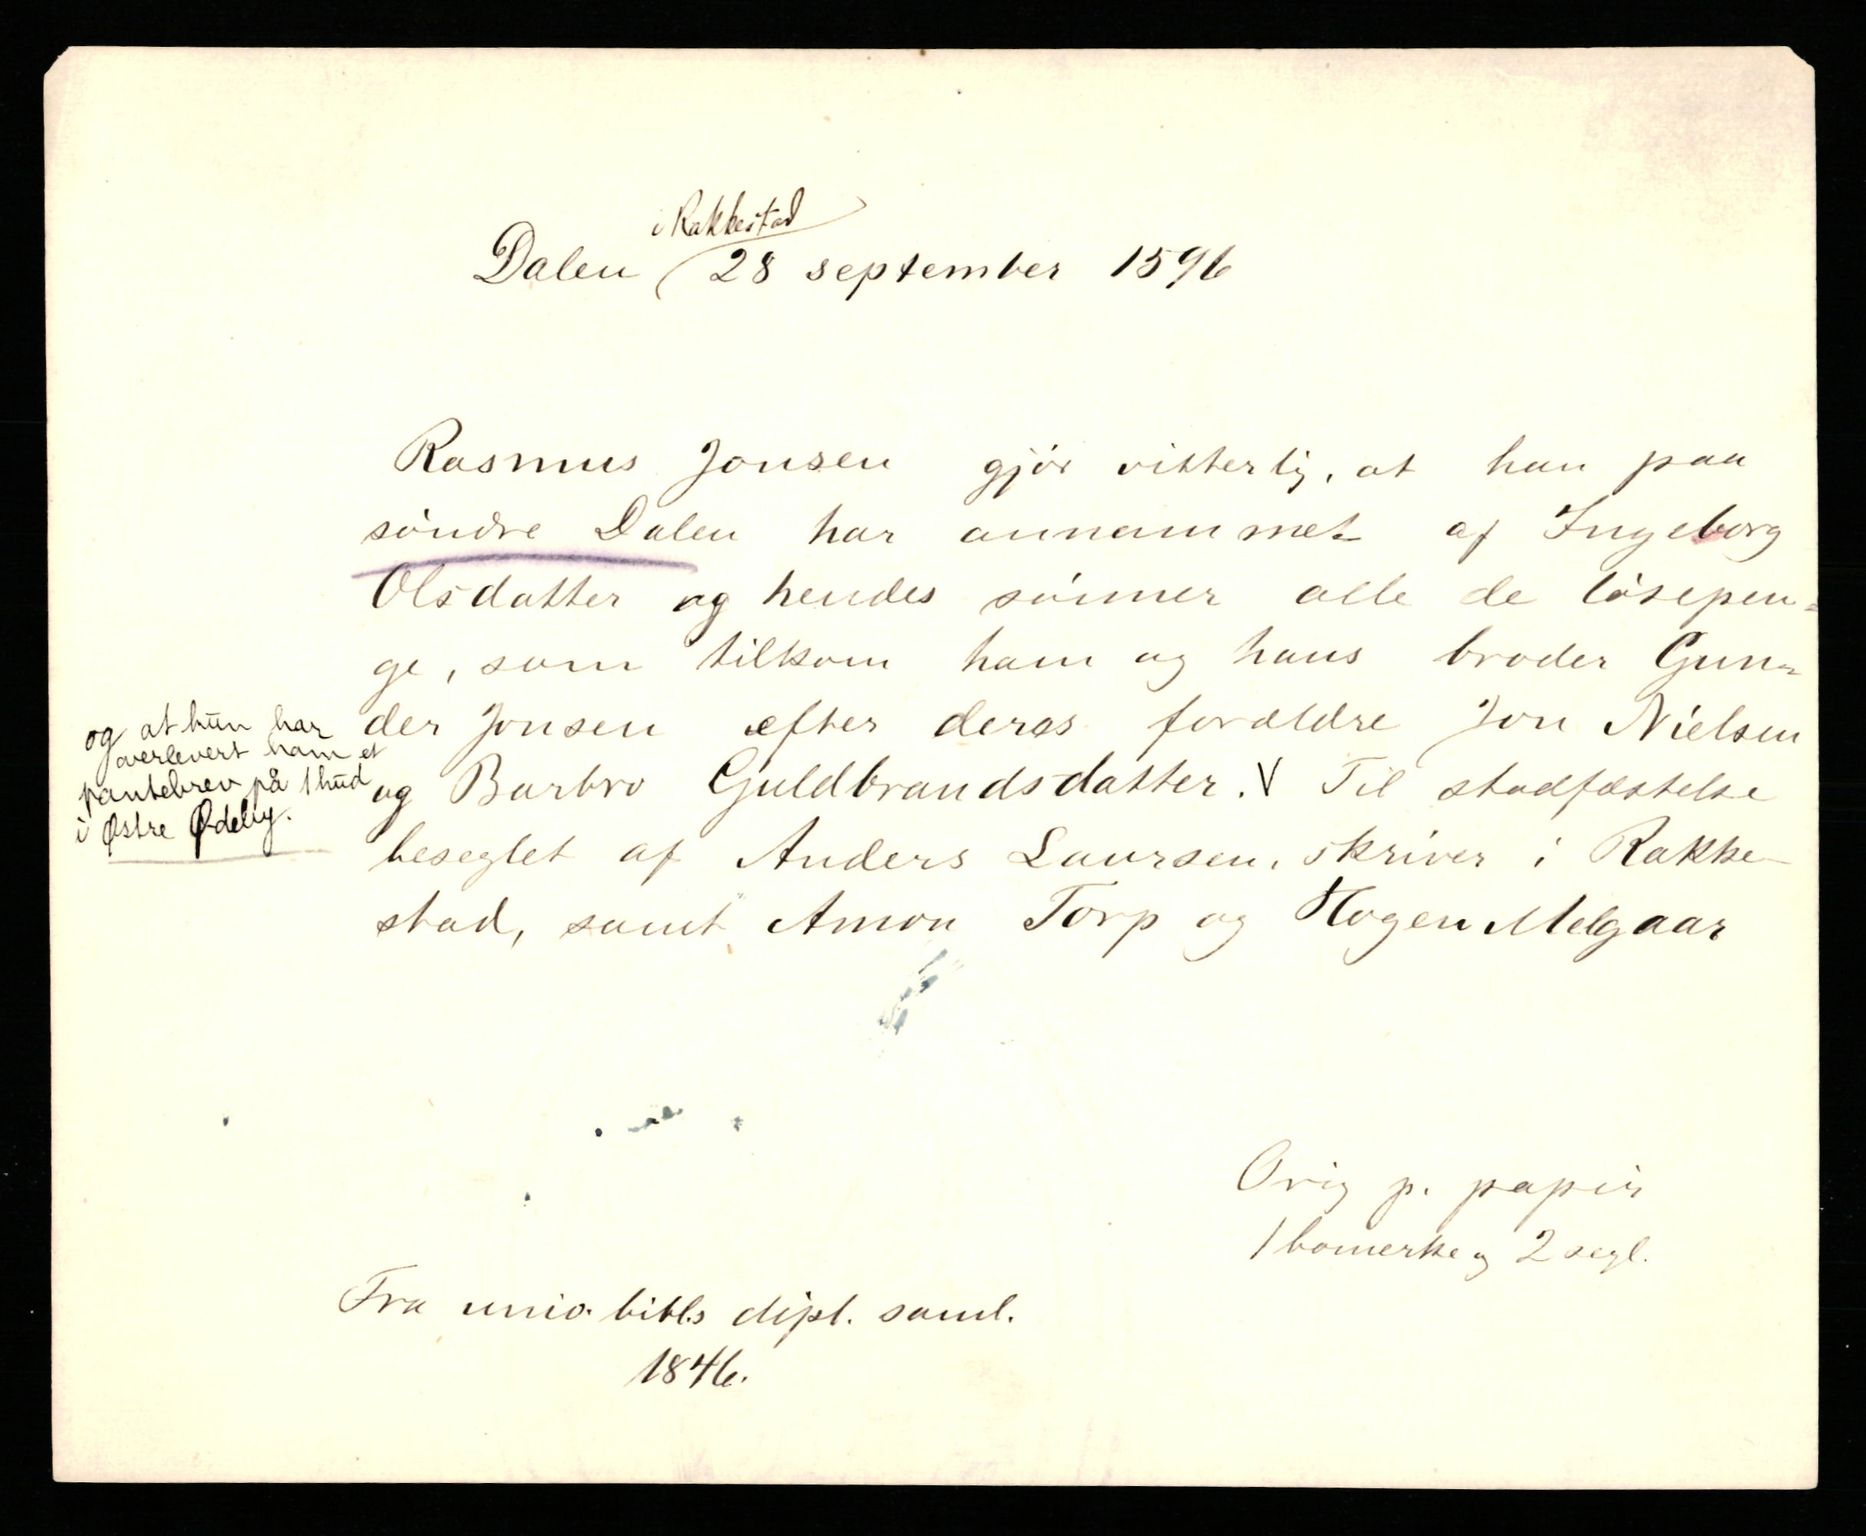 i Rakkestad
Dalen 28 september 1596
Rasmus Jonsen gjör vitterlig, at han paa
söndre Dalen har annammet af Ingeborg
Olsdatter og hendes sönner alle de lösepen-
ge, som tilkom ham og hans broder Gun-
der Jonsen efter deres forældre Jon Nielsen
og Barbro Guldbrandsdatter. V Til stadfæstelse
beseglet af Anders Laursen, skriver i Rakke-
stad, samt Amon Torp og Hogen Melgaar
og at hun har
overlevert ham et
pantebrev på 1 hud
i Østre Ødeby.
Orig p. papir
1 bomerke og 2 segl.
Fra univ. bibl.s dipl. saml.
1846.